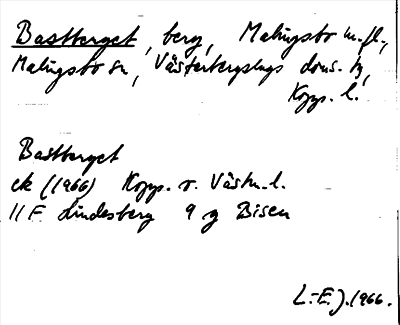 Bastberget, berg, Malingsbo m.fl.,
Malingsbo sn, Västerbergslags doms. tg,
Kopp. l.
Bastberget
ek (1966) Kopp. o. Västm. l.
11 F Lindesberg 9 g Bisen
L.-E. J. 1966.